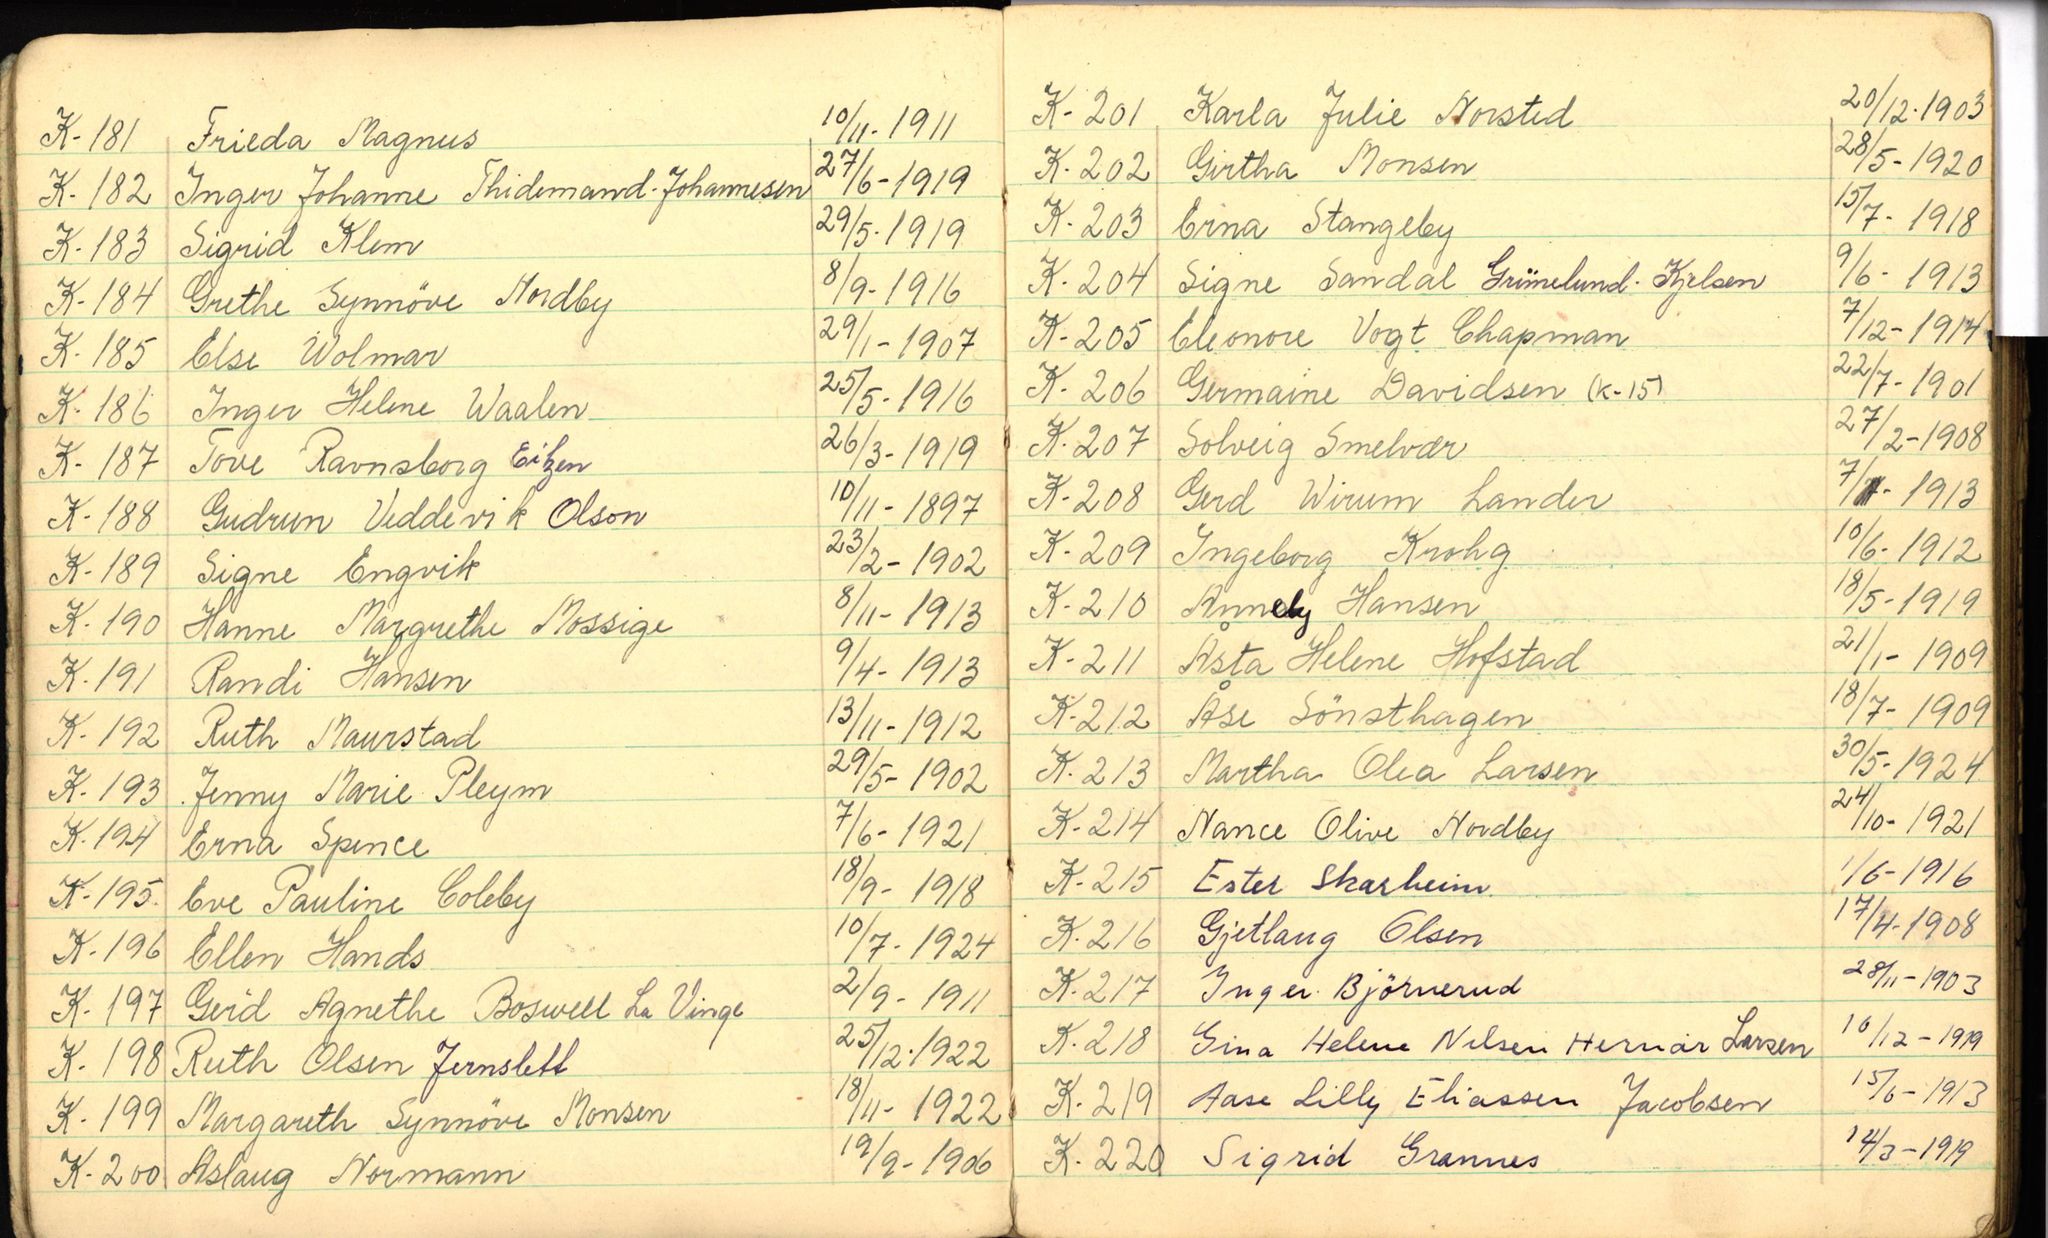 K-181 Frieda Magnus 10/11-1911
K-182 Inger Johanne Thidemand-Johannesen 27/6-1919
K-183 Sigrid Klem 29/5-1919
K-184 Grethe Synnöve Nordby 8/9-1916
K-185 Else Wolmar 29/1-1907
K-186 Inger Helene Waalen 25/5-1916
K-187 Tove Ravnsborg Eitzen 26/3-1919
K-188 Gudrun Veddevik Olson 10/11-1897
K-189 Signe Engvik 23/2-1902
K-190 Hanne Margrethe Mossige 8/11-1913
K-191 Randi Hansen 9/4-1913
K-192 Ruth Maurstad 13/11-1912
K-193 Jenny Marie Pleym 29/5-1902
K-194 Erna Spence 7/6-1921
K-195 Eve Pauline Coleby 18/9-1918
K-196 Ellen Hands 10/7-1924
K-197 Gerd Agnethe Boswell La Vinge 2/9-1911
K-198 Ruth Olsen Jernslett 25/12-1922
K-199 Margareth Synnöve Monsen 18/11-1922
K-200 Aslaug Normann 19/9-1906
K-201 Karla Julie Norsted 20/12-1903
K-202 Girtha Monsen 28/5-1920
K-203 Erna Stangeby 15/7-1918
K-204 Signe Sandal Grünelund-Kjelsen 9/6-1913
K-205 Eleonore Vogt Chapman 7/12-1914
K-206 Germaine Davidsen (K-15) 22/7-1901
K-207 Solveig Smelvær 27/2-1908
K-208 Gerd Wirum Lander 7/ -1913
K-209 Ingeborg Krohg 10/6-1912
K-210 Annely Hansen 18/5-1919
K-211 Åsta Helene Hofstad 21/1-1909
K-212 Åse Sönsthagen 18/7-1909
K-213 Martha Olea Larsen 30/5-1924
K-214 Nance Olive Nordby 24/10-1921
K-215 Ester Skarheim 1/6-1916
K-216 Gjetlaug Olsen 17/4-1908
K-217 Inger Björnerud 28/11-1903
K-218 Gina Helene Nilsen Hernar Larsen 10/12-1919
K-219 Aase Lilly Eliassen Jacobsen 15/6-1913
K-220 Sigrid Grannes 14/3-1919